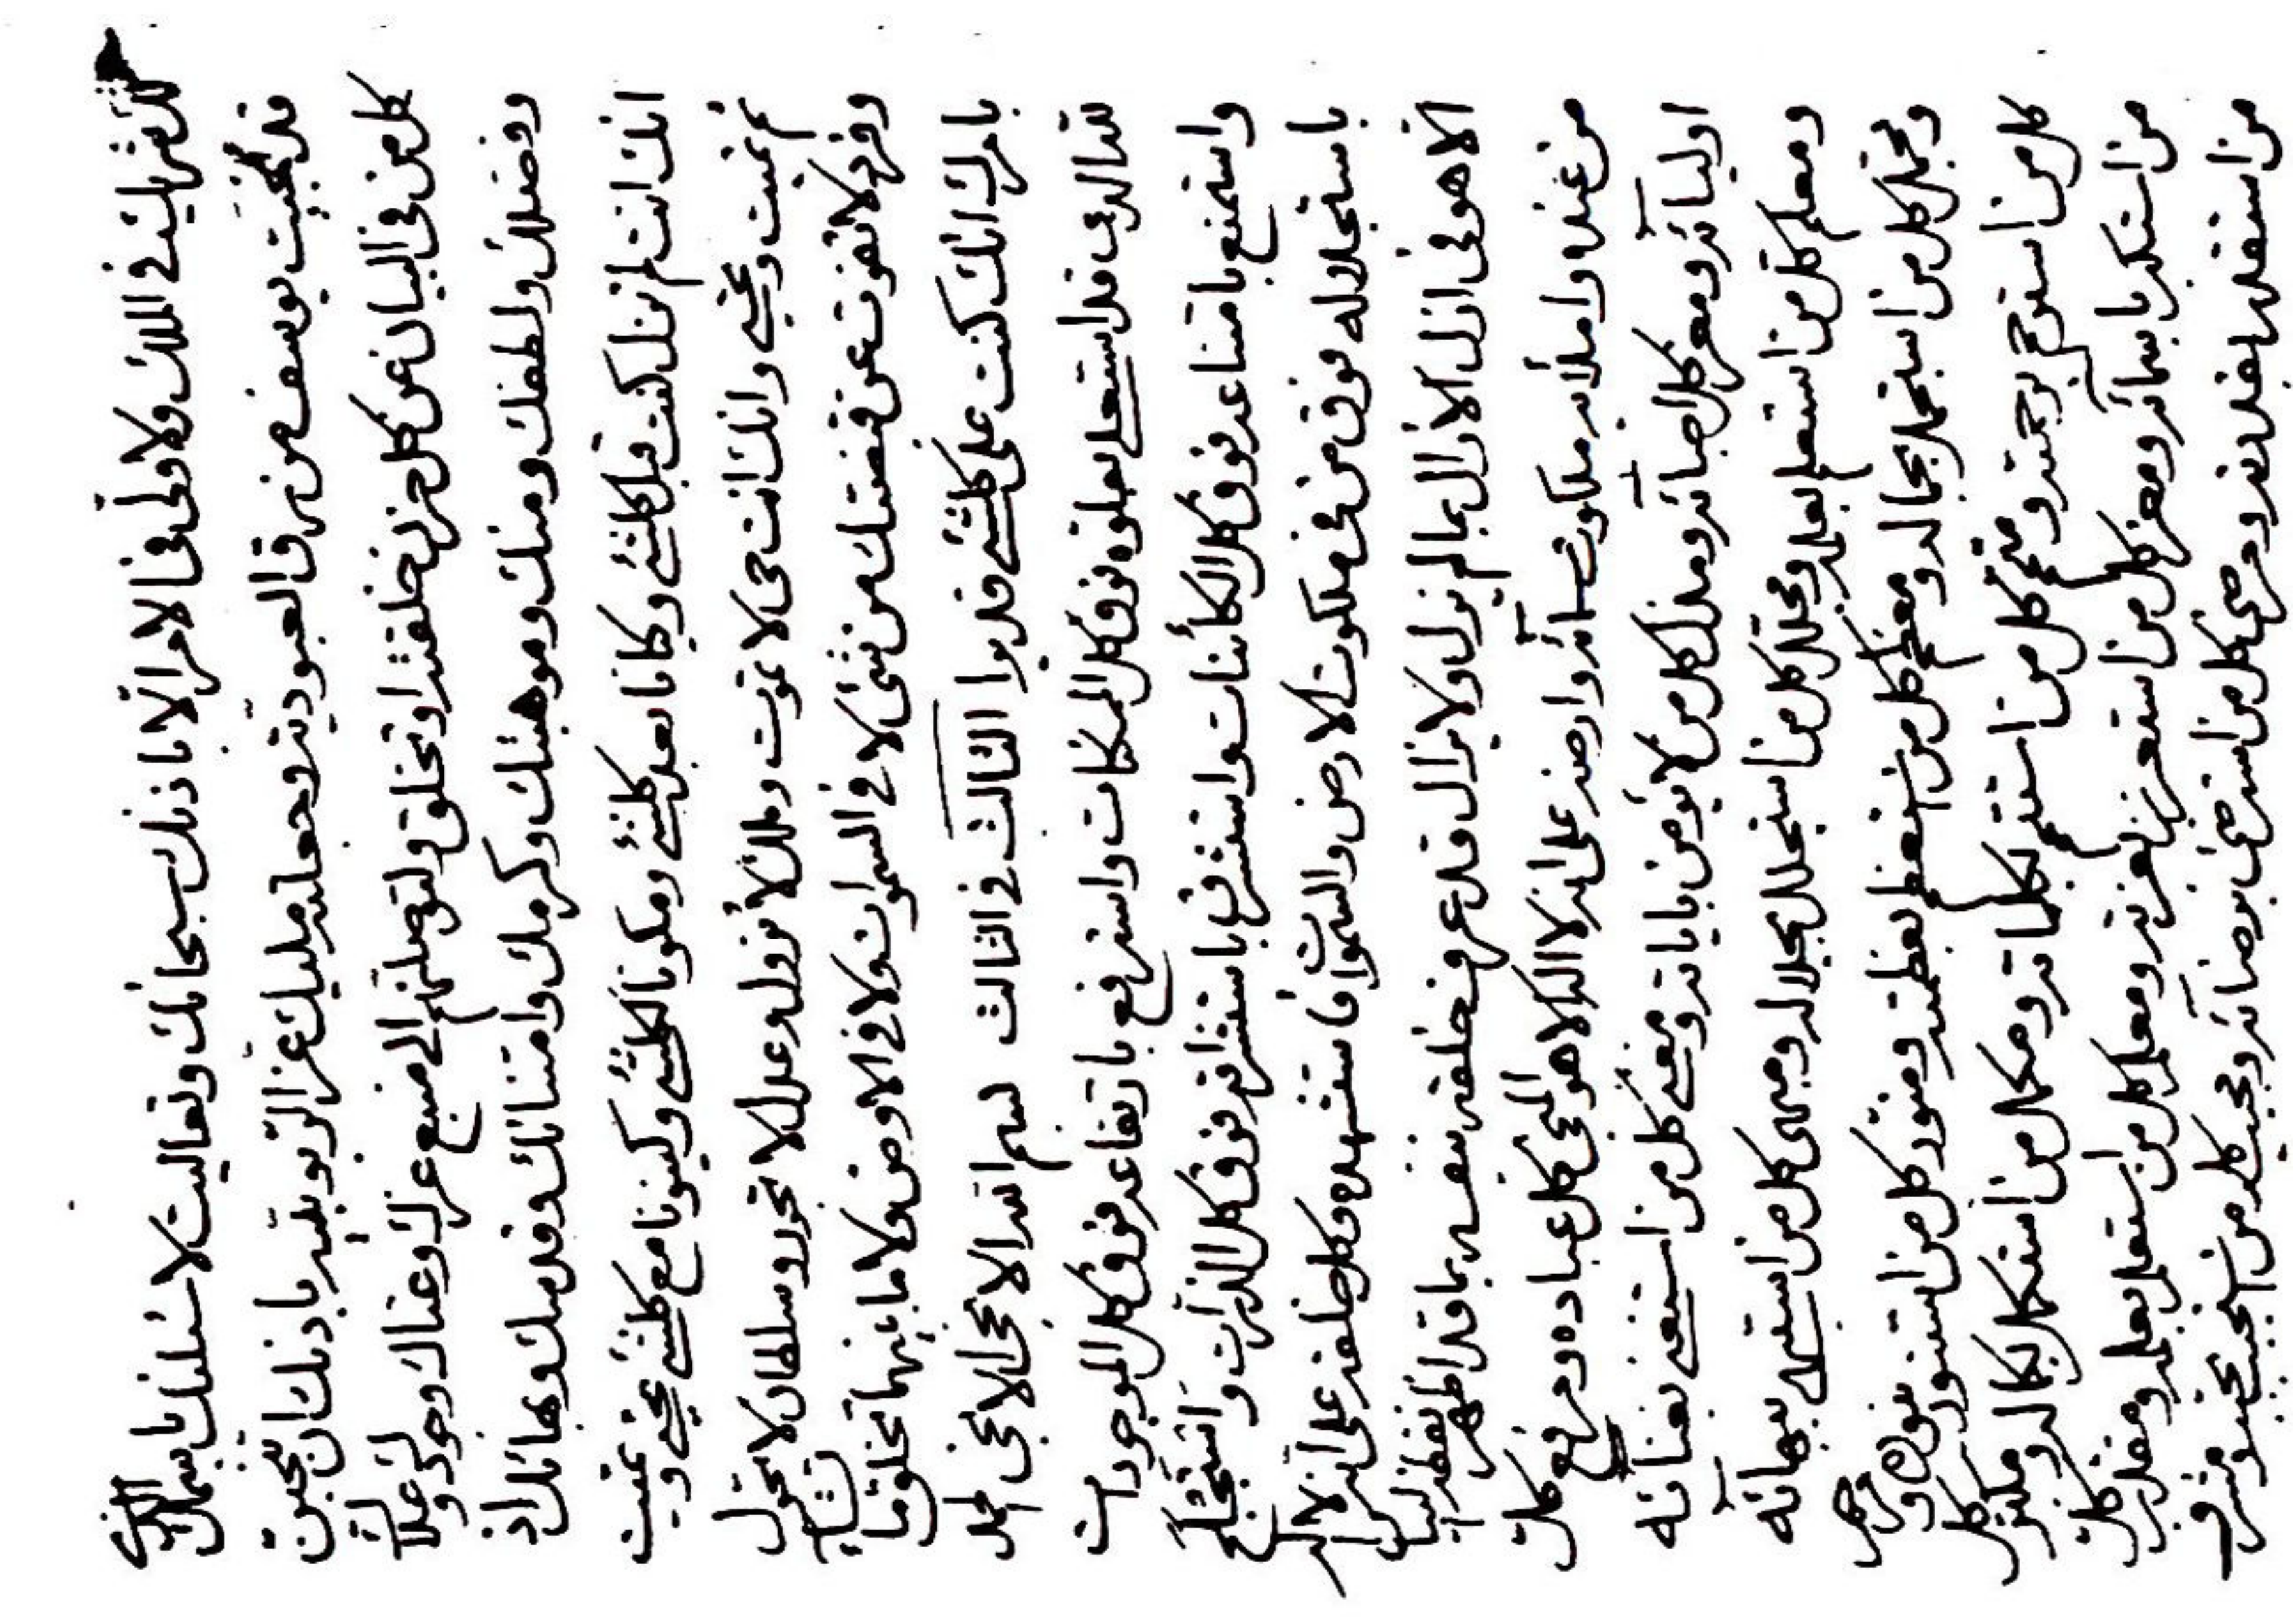 في الملك ولا ولي في الامر الا باذنك سبحانك وتعاليت لاسئلنك باسمك الذي
قد نجيت يوسف من رق العبودية وجعلته مليك عز الربوبية باذنك ان تنجين
كل من في البيان عن كل حزن خلقته او تخلق ولتوصلنهم الى منبع عزك وغناك وجودك وعلاك
وفضلك ولطفك ومنك وموهبتك وكرمك وامتنانك وقدسك وبهائك اذ
انك انت لم تزل كنت قبل كلشئ وكيانا بعد كلشئ ومكونا لكلشئ وكينونا مع كلشئ تحيي وتميت
ثم تميت وتحيي وانك انت حي لا تموت وملك لا تزول وعدل لا تجور وسلطان لا تحول
وفرد لا تفوت عن قبضتك من شئ لا في السموات ولا في الارض ولا ما بينهما تخلق ما تشاء
بامرك انك كنت على كلشئ قديرا الثالث في الثالث بسم الله الابهى الابهى الحمد
لله الذي قد استعلى بعلوه فوق كل الممكنات واسترفع بارتفاعه فوق كل الموجودات
واستمنع بامتناعه فوق كل الكائنات واستشرق باستشراقه فوق كل الذرات واستجلل
باستجلاله فوق من في ملكوت الارض والسموات فاستشهده وكل خلقه على انه لا اله
الا هو في ازل الازال بما لم يزل ولا يزال قد عرف خلقه نفسه بما قد اظهر نقطة البيان
من عنده واملأ به ملكوت سمائه وارضه على انه لا اله الا هو المنجي كل عباده ومرفع كل
اوليائه ومعز كل اصفيائه ومذل كل من لا يؤمن باياته ومغني كل من استغنى بغنائه
ومعلم كل من استعلم بعلمه ومجلل كل من استجلل بجلاله ومبهى كل من استبهى ببهائه
ومجمل كل من استجمل بجماله ومعظم كل من استعظم بعظمته ومنور كل من استنور بنوره ومرحم
كل من استرحم برحمته ومتمم كل من استتم بكلماته ومكمل من استكمل بكماله ومكبر كل
من استكبر باسمائه ومعز كل من استعزز بعزته ومعلم كل من استعلم بعلمه ومقدر كل
من استقدر بقدرته ومرضى كل من استرضى برضائه ومحبب كل من استحبب بحبه ومشرف